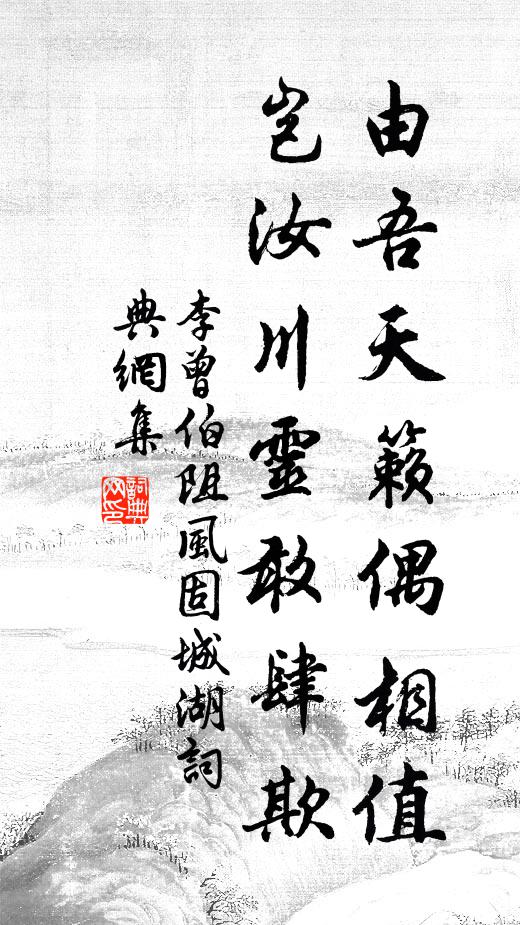 由吾天籟偶相值
豈汝川靈敢肆欺
李曾伯阻風固城湖詞
典網集
詞典網印